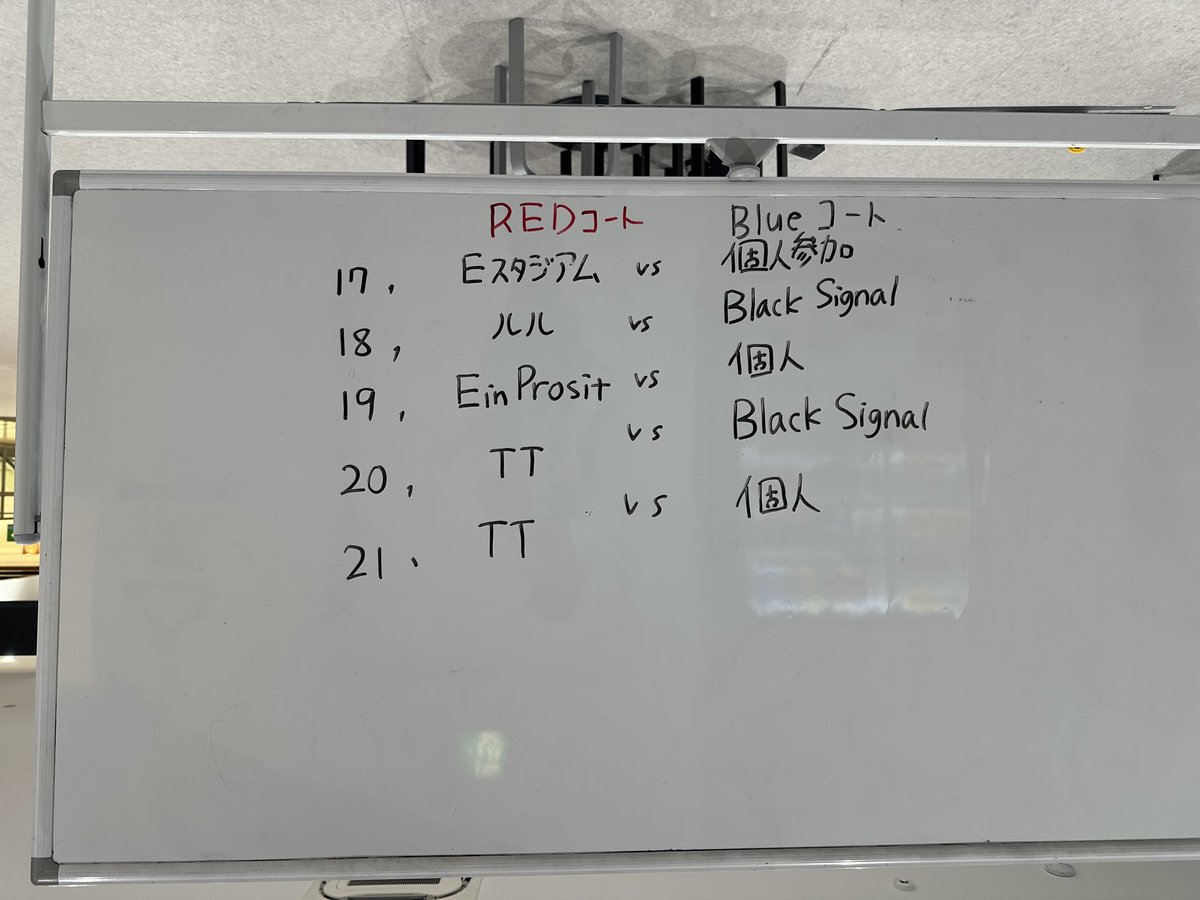 REDコート Blueコート
17, Eスタジアム vs 個人参加
18, ルル vs Black Signal
19, Ein Prosit vs 個人
20, TT vs Black Signal
21、 TT vs 個人